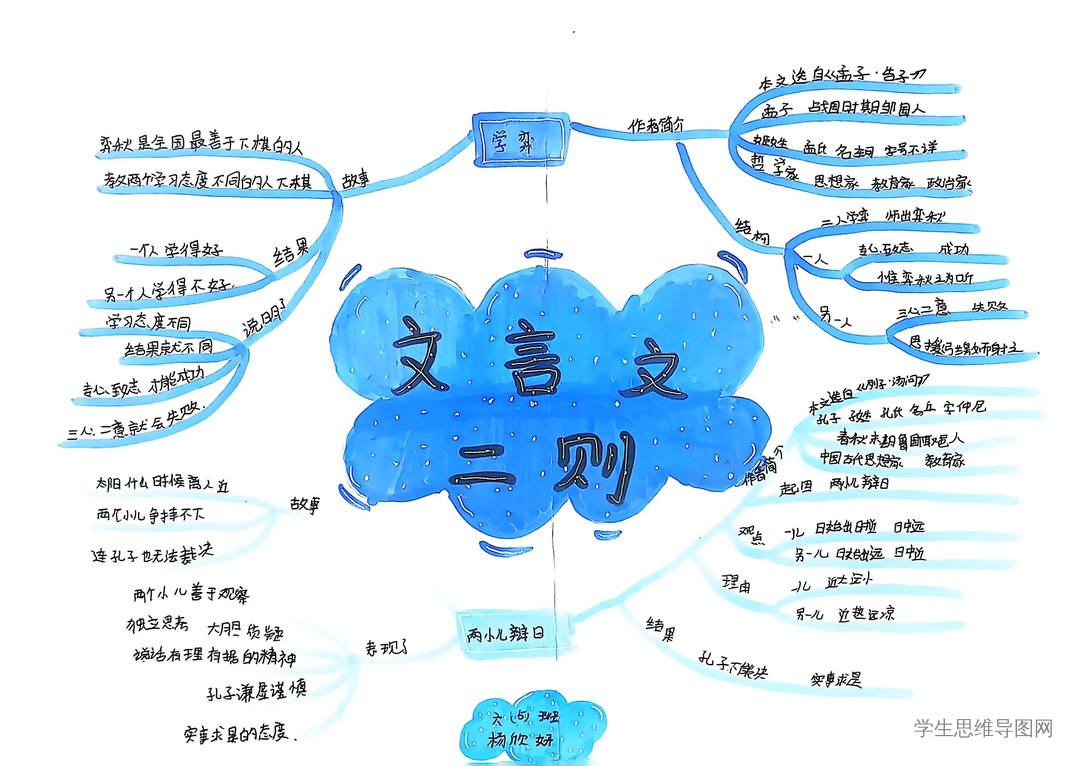 文言文
二则
学弈
作者简介
本文选自《孟子·告子》
孟子 战国时期邹国人
姬姓 孟氏 名轲 字号不详
哲学家 思想家 教育家 政治家
结构
二人学弈 师出弈秋
一人
专心致志 成功
惟弈秋之为听
另一人
三心二意 失败
思援弓缴而射之
故事
弈秋是全国最善于下棋的人
教两个学习态度不同的人下棋
结果
一个人学得好
另一个人学得不好.
说明了
学习态度不同
结果就不同
专心致志 才能成功
三心二意就会失败.
两小儿辩日
作者简介
本文选自《列子·汤问》
孔子 子姓 孔氏 名丘 字仲尼
春秋末期鲁国陬邑人
中国古代思想家 教育家
起因 两小儿辩日
观点
一儿 日始出日近 日中远
另一儿 日始出远 日中近
理由
一儿 近大远小
另一儿 近热远凉
结果
孔子不能决 实事求是
故事
太阳什么时候离人近
两个小儿争持不下
连孔子也无法裁决
表现了
两个小儿善于观察
独立思考 大胆质疑
说话有理有据的精神
孔子谦虚谨慎
实事求是的态度.
六(5)班
杨欣妍
学生思维导图网